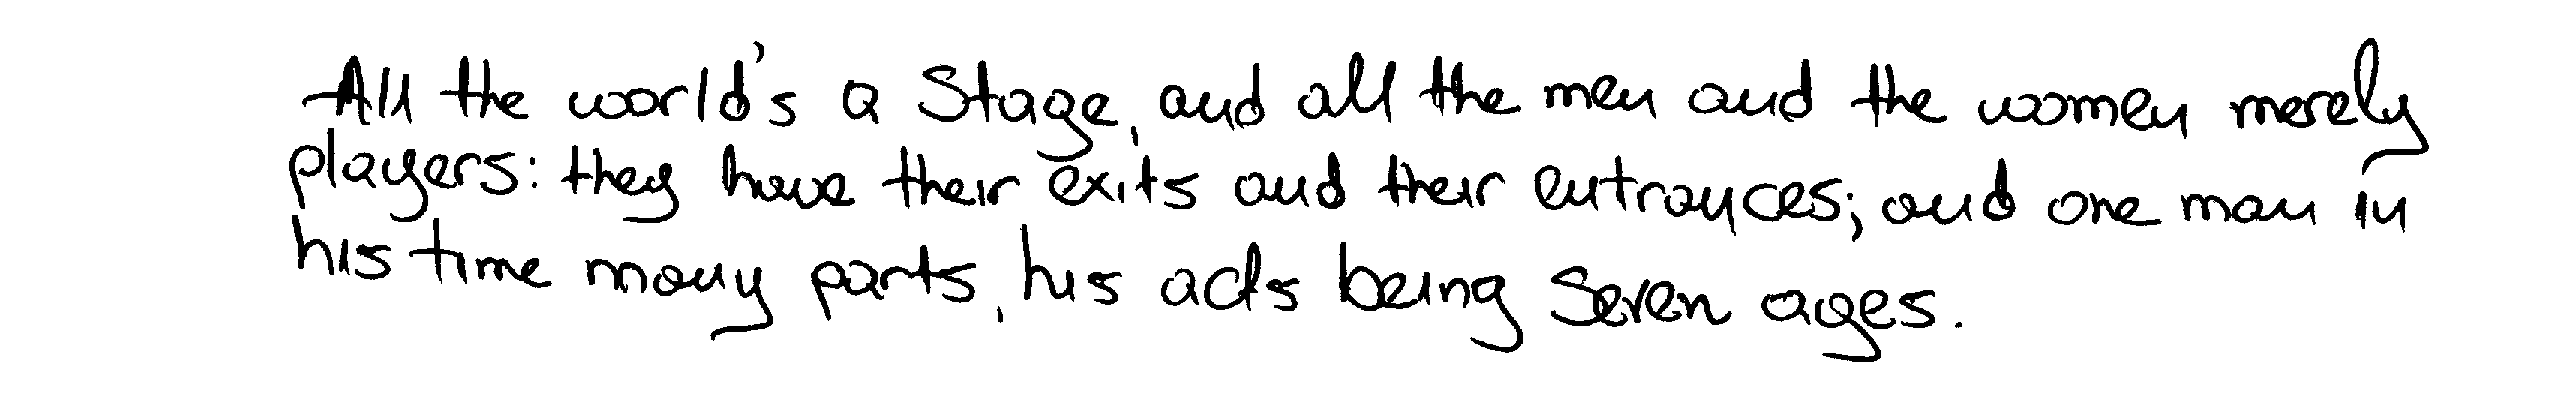 All the world's a Stage, and all the men and the women merely
players: they have their exits and their entrances; and one man in
his time many parts, his acts being seven ages.